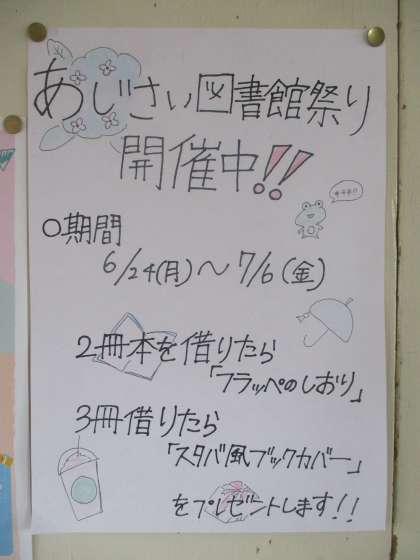 あじさい図書館祭り
開催中!!
○期間
6/24(月)～7/6(金)
2冊本を借りたら
「フラッペのしおり」
3冊借りたら
「スタバ風ブックカバー」
をプレゼントします!!